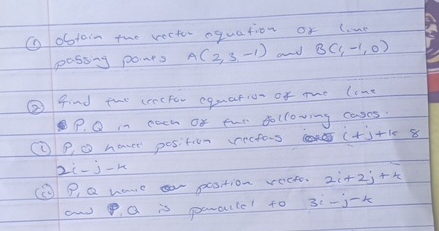 ① obtain the vector equation of line
passing points A(2, 3, -1) and B(1, -1, 0)
② find the vector equation of the line
P, Q in each of the following cases.
(i) P, Q have position vectors i+j+k &
2i-j-k
(ii) P, Q have position vector 2i+2j+k
and P, Q is parallel to 3i-j-k